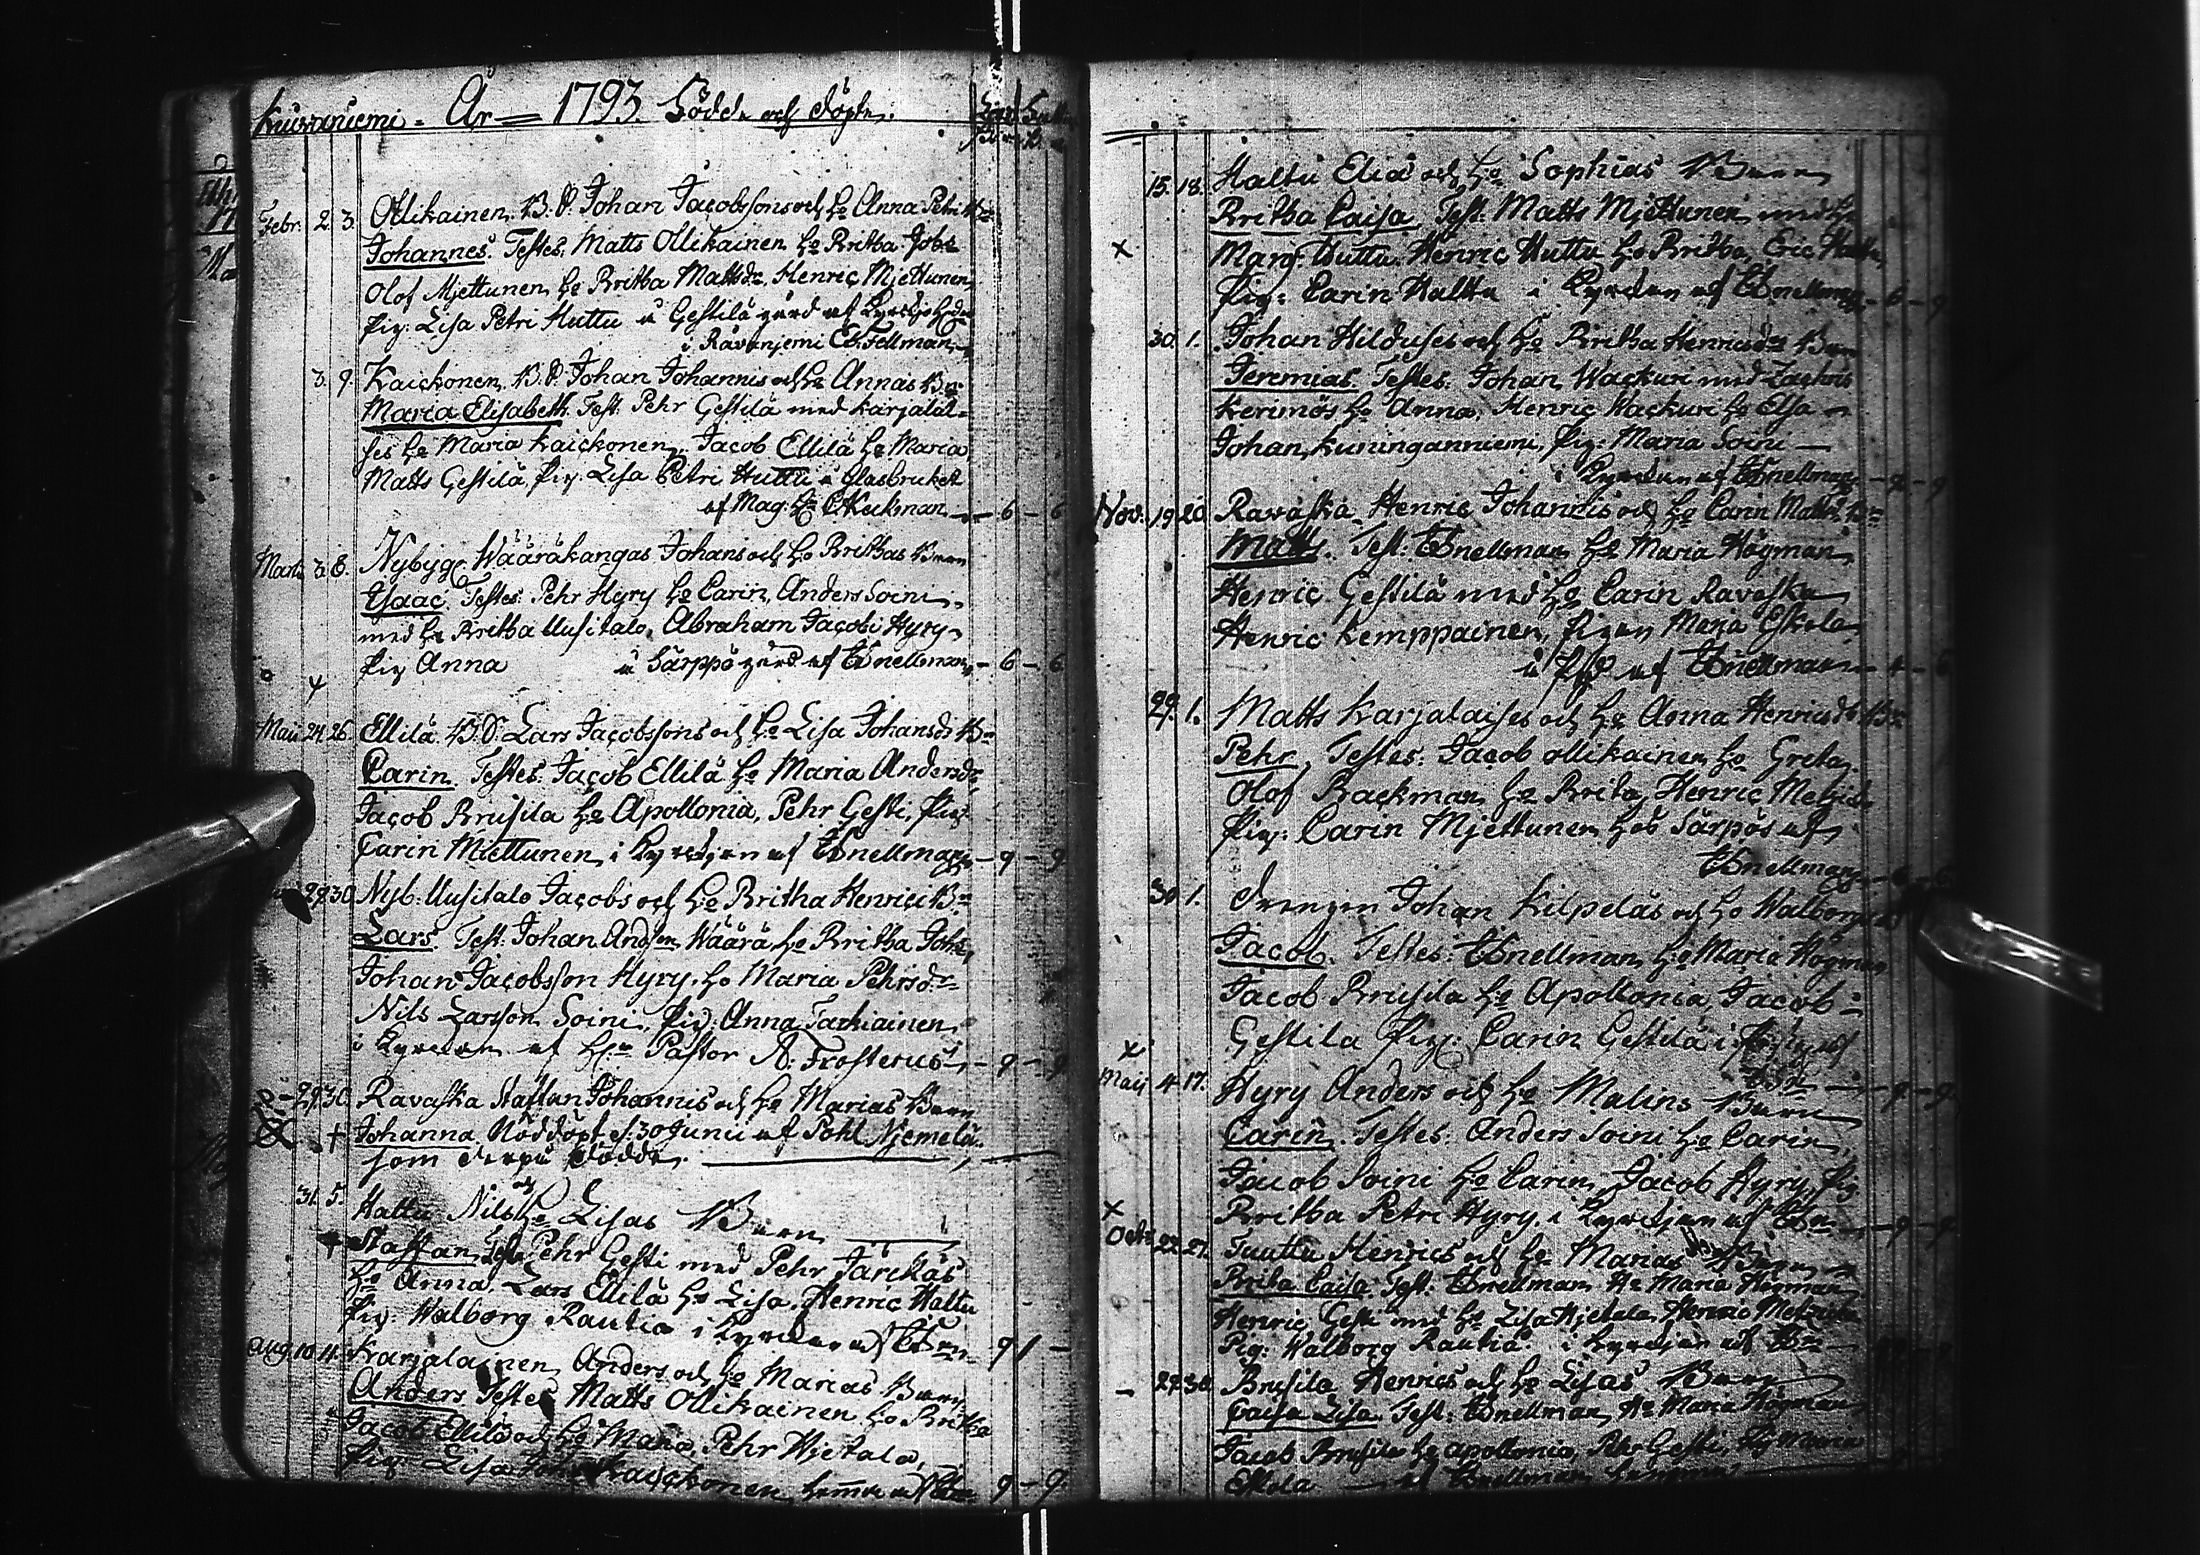 Kuivaniemi. År 1793. Födde och döpte.
Febr. 2. 3. Ollikainen. B. S. Johan Jacobssons och H:o Anna Petri B:n
Johannes. Testes: Matts Ollikainen H:o Britha Johs
Olof Mjettunen H:o Britha Mattsdr, Henric Mjettunen
pig: Lisa Petri Huttu å Gestilä gård af
i Råvanjemi E: Fellman
3. 9. Kaickonen, B. S. Johan Johannis och H:o Annas B:n
Maria Elisabeth. Test: Pehr Gestilä med Karjalai-
ses H:o Maria Kaickonen, Jacob Ellilä H:o Maria
Matts Gestilä, pig. Lisa Petri Huttu å Glasbruket
af Mag: H:r C. Keckman - 6 - 6
Marti 3. 8. Nybygg. Wääräkangas Johans och H:o Brithas Barn
Isaac. Testes: Pehr Hyry H:o Carin, Anders Soini
med H:o Britha Uusitalo, Abraham Jacobi Hyry
pig Anna å Särppö gård af Snellman - 6 - 6
Maii 24. 26. Ellilä. B. S. Lars Jacobssons och H:o Lisa Johansdr B:n
Carin. Testes: Jacob Ellilä H:o Maria Andersdr
Jacob Brusila H:o Apollonia, Pehr Gesti, pig:
Carin Miettunen, i Kyrckan af Snellman - 9 - 9
29. 30. Nyb: Uusitalo Jacobs och H:o Britha Henrici B:n
Lars. Test: Johan Anders. Wäärä H:o Britha Johs,
Johan Jacobsson Hyry H:o Maria Pehrsdr
Nils Larsson Soini, pig: Anna Tackiainen
i Kyrckan af H:r Pastor A: Frosterus - 9 - 9
29. 30. Ravaska Staffan Johannis och H:o Marias Barn
+ Johanna Nöddöpt d. 30 Junii af Pohl. Njemelä
som derpå dödde.
31. 5. Hattu Nils och H:o Lisas Barn
+ Staffan. Test: Pehr Gesti med Pehr Järckäs
H:o Anna. Lars Ellilä H:o Lisa. Henric Hattu
pig: Walborg Rautia i Kyrckan af Sn - 9 1 -
Aug. 10. 11. Karjalainen Anders och H:o Marias Barn
Anders. Testes Matts Ollikainen H:o Britha
Jacob Ellilä och H:o Maria, Pehr Hjetala,
pig Lisa Kaickonen, hemma af Sn 9 - 9
15. 18. Haltu Eliä och H:o Sophias Barn
Britha Caisa. Test: Matts Mjettunen med H:o
x Marg: Huttu. Henric Huttu H:o Britha, Eric
pig: Carin Haltu i Kyrckan af Snellman - 6 - 9
30. 1. Johan Hilduses och H:o Britha Henricsdrs Barn
Jeremias. Testes: Johan Wackuri med Zachris
Kerimös H:o Anna, Henric Wackuri H:o Elsa
Johan Kuninganniemi, pig: Maria Soini
i Kyrckan af Snellman - 9 - 9
Nov: 19. 20. Ravaska Henric Johannis och H:o Carin Matts. B:n
Matts. Test: Snellman H:o Maria Högman
Henric Gestilä med H:o Carin Ravaska
Henric Kemppainen, pigan Maria Eskola
af Snellman
29. 1. Matts Karjalaises och H:o Anna Henricsdr B:n
Pehr. Testes: Jacob Ollikainen H:o Greta
Olof Backman H:o Brita, Henric
pig: Carin Mjettunen hos Särpös af
Snellman - 6 - 6
30. 1. Drengen Johan Kilpeläs och H:o Walborgs
Jacob. Testes: Snellman H:o Maria Högman
Jacob Brusila H:o Apollonia, Jacob
x Gestila pig: Carin Gestilä i
Sn - 9 - 9
Maii 4. 17. Hyry Anders och H:o Malins Barn
Carin. Testes: Anders Soini H:o Carin,
Jacob Soini H:o Carin, Jacob Hyry, pig
x Britha Petri Hyry, i Kyrckan af Sn - 9 - 9
Octr 22. 27. Tuuttu Henrics och H:o Marias Barn
Brita Caisa. Test: Snellman H:o Maria Högman
Henric Gesti med H:o Lisa Hjetala, Henric
Pig: Walborg Rautia i Kyrckan af Sn
29. 30. Brusila Henrics och H:o Lisas Barn
Caisa Lisa. Test: Snellman H:o Maria Högman
Jacob Brusila H:o Apollonia, Pehr Gesti, pig Maria
Eskola af Snellman hemma